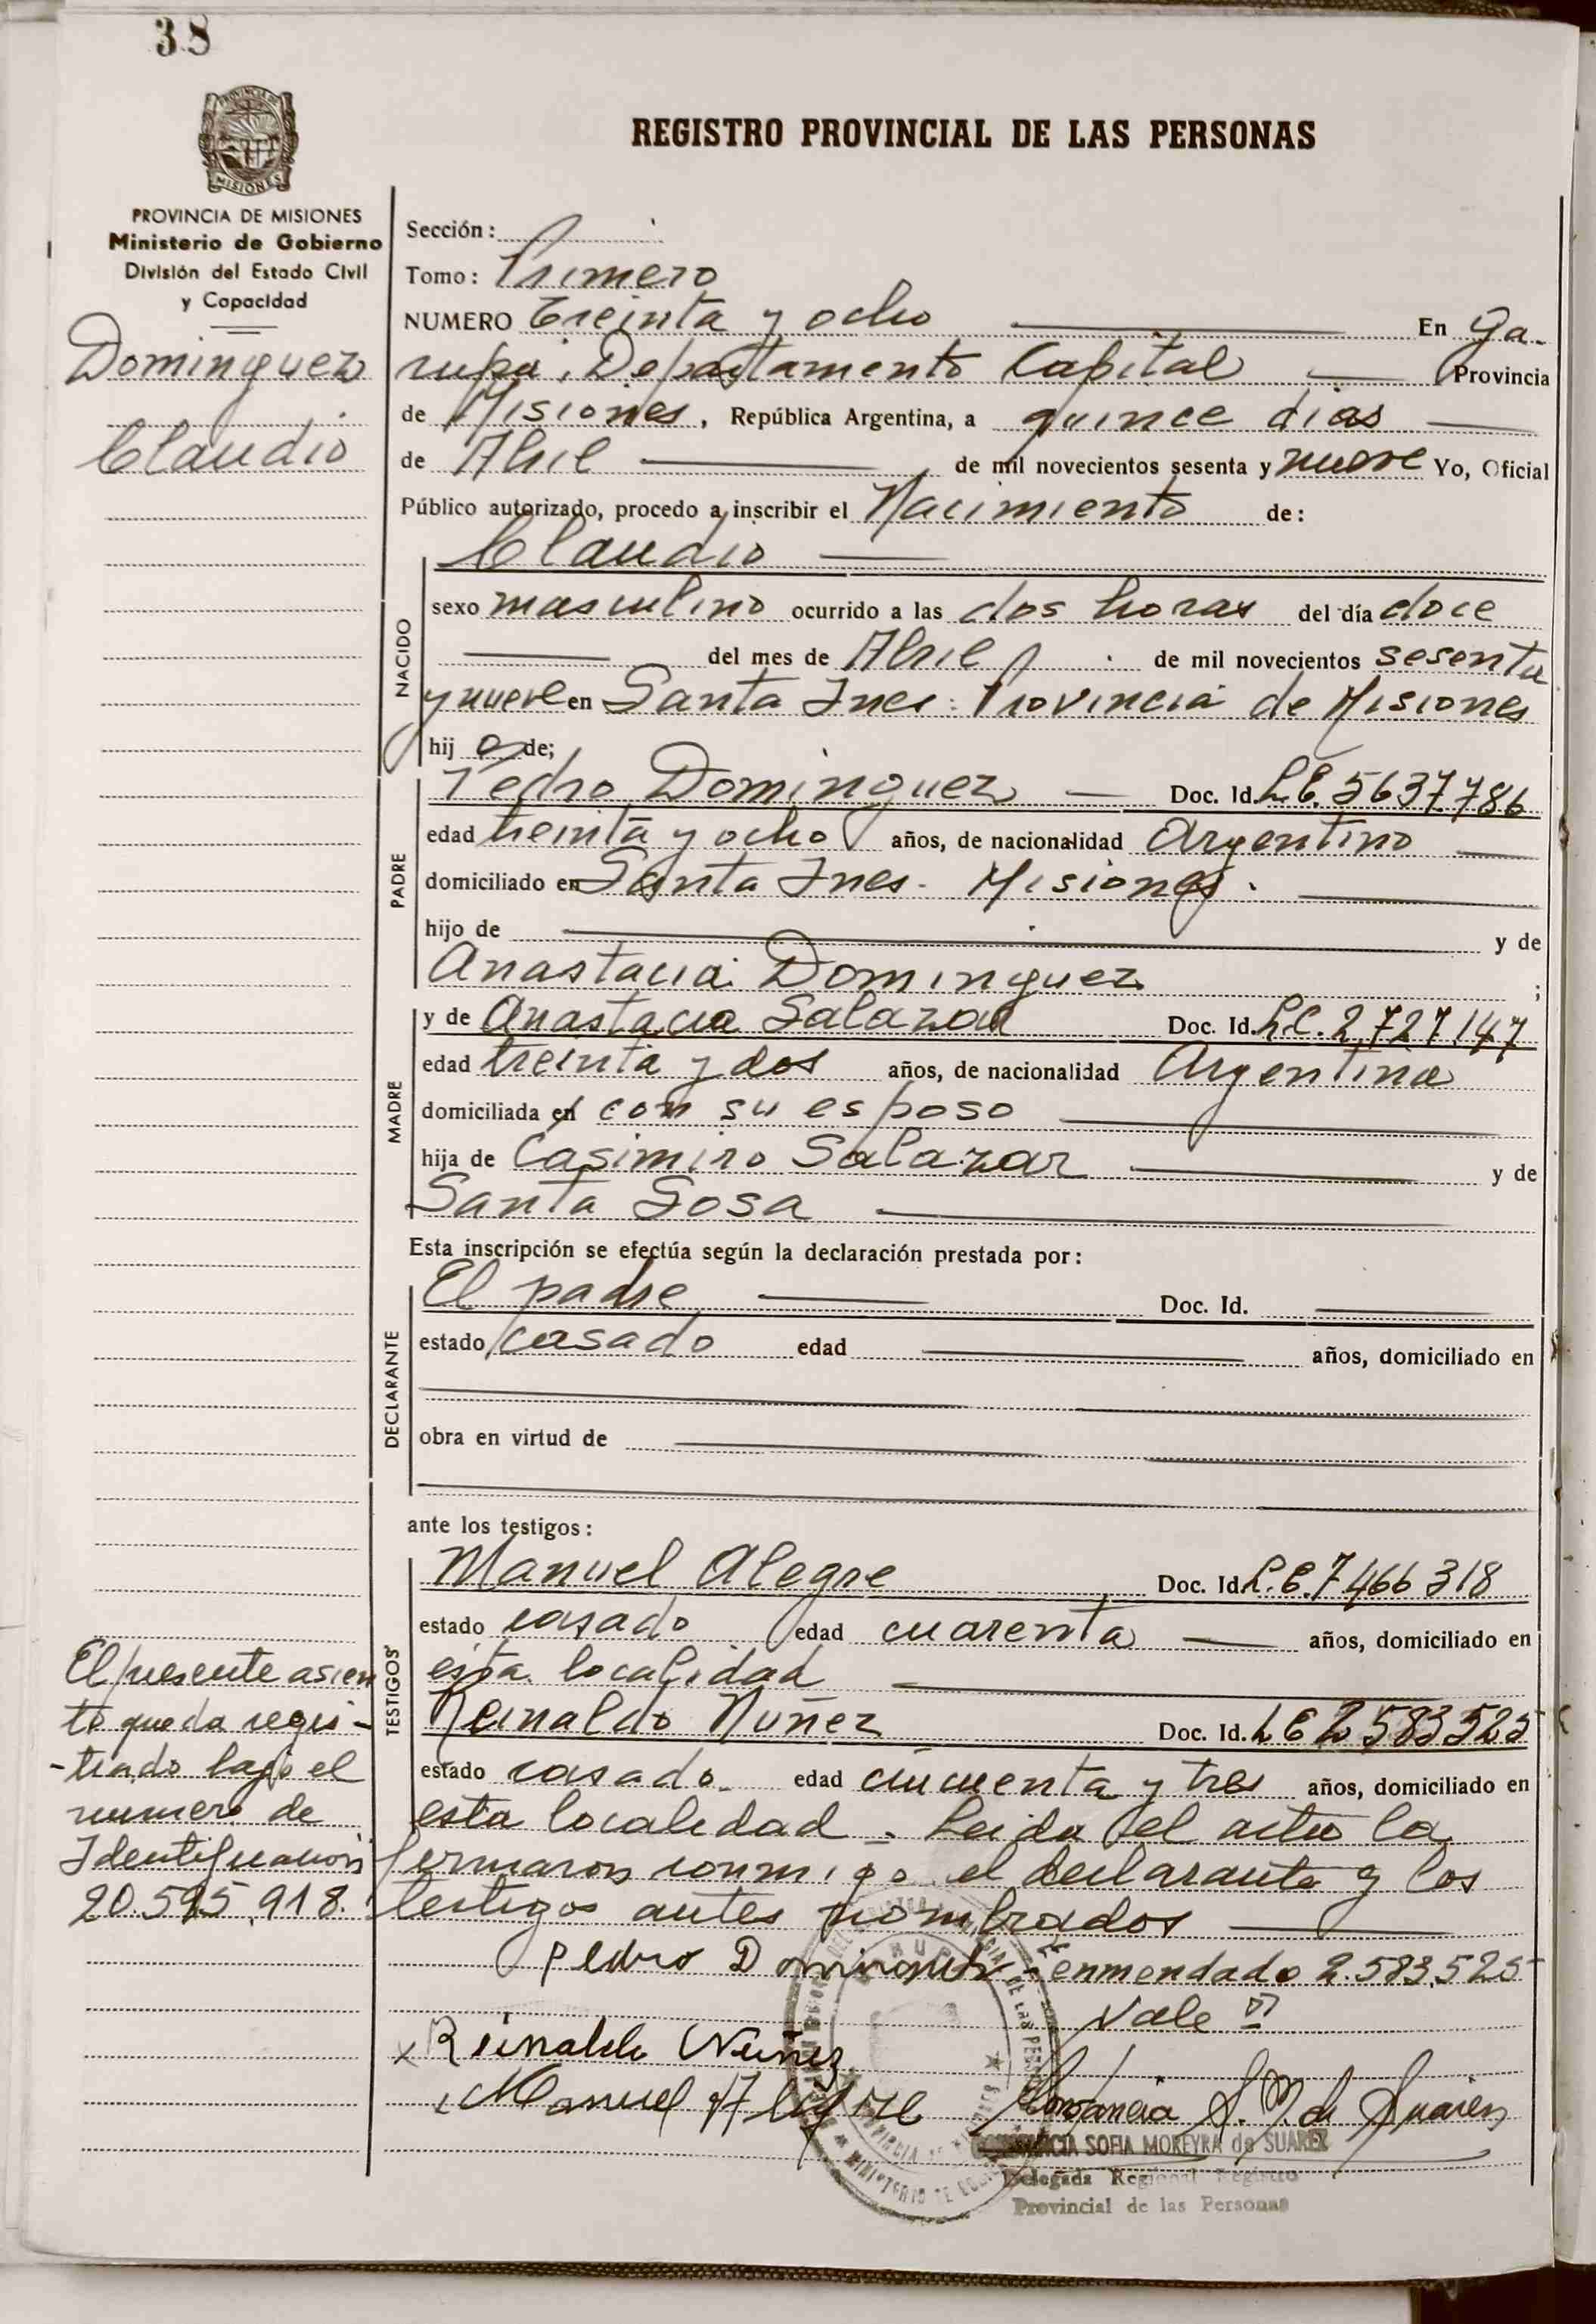 38
PROVINCIA DE MISIONES
Ministerio de Gobierno
División del Estado Civil
y Capacidad
Dominguez
Claudio
REGISTRO PROVINCIAL DE LAS PERSONAS
Sección:
Tomo: Primero
NUMERO Treinta y ocho En Ga-
rupa, Departamento Capital Provincia
de Misiones, República Argentina, a quince dias
de Abril de mil novecientos sesenta y nueve Yo, Oficial
Público autorizado, procedo a inscribir el Nacimiento de:
NACIDO
Claudio
sexo masculino ocurrido a las dos horas del día doce
del mes de Abril de mil novecientos sesenta
y nueve en Santa Ines. Provincia de Misiones
hijo de;
PADRE
Pedro Dominguez Doc. Id. L.E. 5637.786
edad treinta y ocho años, de nacionalidad Argentino
domiciliado en Santa Ines. Misiones.
hijo de y de
Anastacia Dominguez ;
MADRE
y de Anastacia Salazar Doc. Id. L.C. 2.727.147
edad treinta y dos años, de nacionalidad Argentina
domiciliada en con su esposo
hija de Casimiro Salazar y de
Santa Sosa
Esta inscripción se efectúa según la declaración prestada por:
DECLARANTE
El padre Doc. Id.
estado casado edad años, domiciliado en
obra en virtud de
ante los testigos:
TESTIGOS
Manuel Alegre Doc. Id. L.E. 7.466 318
estado casado edad cuarenta años, domiciliado en
esta localidad
Reinaldo Nuñez Doc. Id. L E 2 583 525
estado casado edad cincuenta y tres años, domiciliado en
esta localidad. Leida el acta la
firmaron conmigo el declarante y los
testigos antes nombrados
Pedro Dominguez enmendado 2.583.525
Vale
x Reinaldo Nuñez
Manuel Alegre Constancia S. M. de Suarez
CONSTANCIA SOFIA MOREYRA de SUAREZ
Delegada Regional Registro
Provincial de las Personas
El presente asien
to queda regis-
-trado bajo el
numero de
Identificacion
20.595.918.